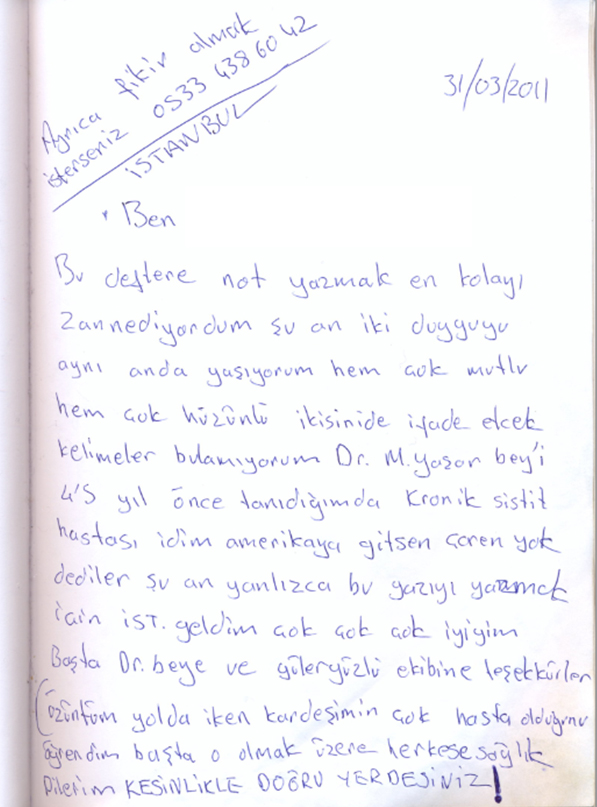 Ayrıca fikir almak
isterseniz 0533 438 60 42
İSTANBUL
31/03/2011
Ben
Bu deftere not yazmak en kolayı
zannediyordum şu an iki duyguyu
aynı anda yaşıyorum hem çok mutlu
hem çok hüzünlü ikisinide ifade etcek
kelimeler bulamıyorum Dr. M.Yaşar bey'i
4'5 yıl önce tanıdığımda kronik sistit
hastası idim amerikaya gitsen çaren yok
dediler şu an yanlızca bu yazıyı yazmak
için İST. geldim çok çok çok iyiyim
Başta Dr. beye ve güleryüzlü ekibine teşekkürler
(özüntüm yolda iken kardeşimin çok hasta olduğunu
öğrendim başta o olmak üzere herkese sağlık
Dilerim KESİNLİKLE DOĞRU YERDESİNİZ!